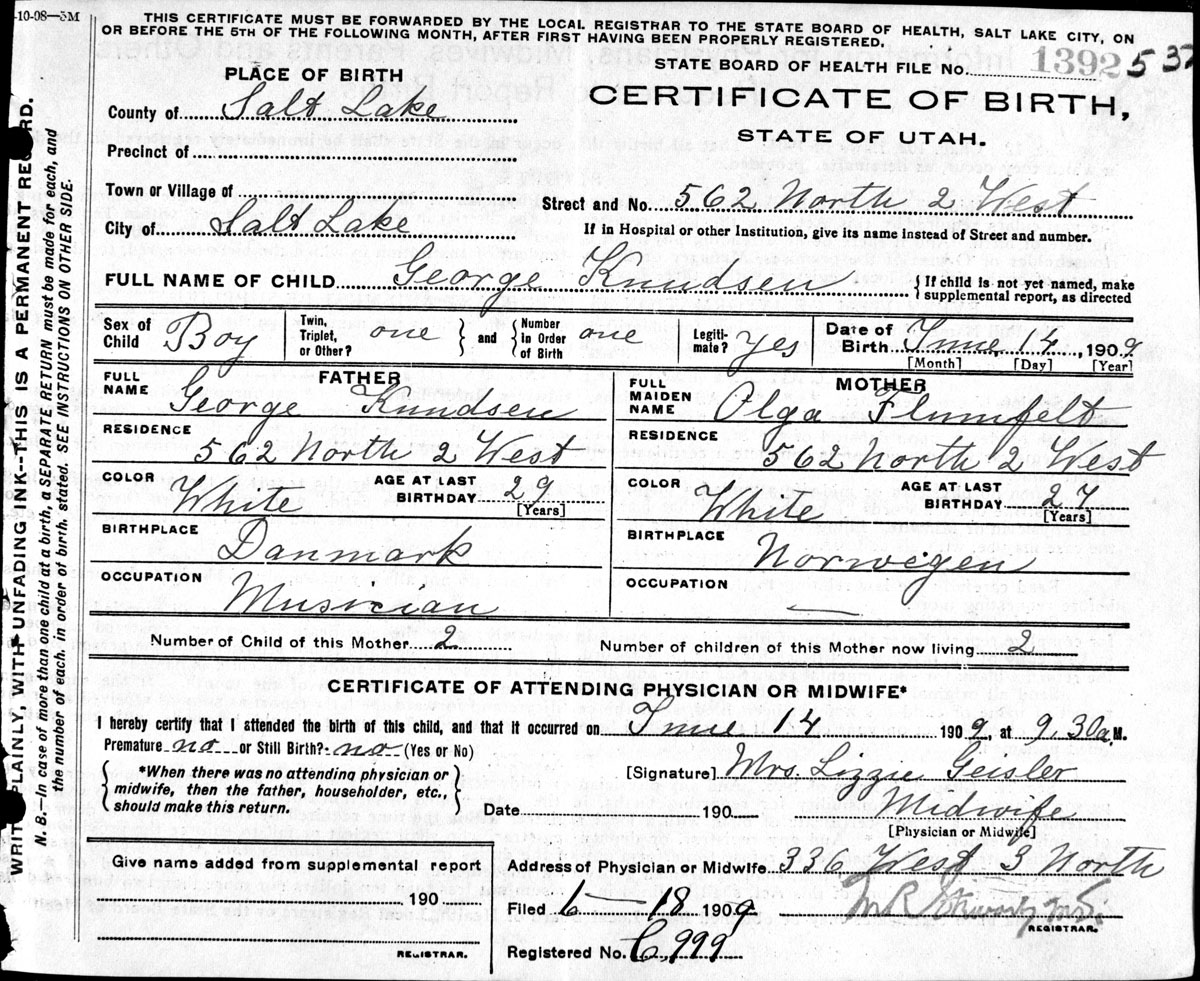 -10-08—5M
THIS CERTIFICATE MUST BE FORWARDED BY THE LOCAL REGISTRAR TO THE STATE BOARD OF HEALTH, SALT LAKE CITY, ON
OR BEFORE THE 5TH OF THE FOLLOWING MONTH, AFTER FIRST HAVING BEEN PROPERLY REGISTERED.
STATE BOARD OF HEALTH FILE No. 1392 537
PLACE OF BIRTH
CERTIFICATE OF BIRTH,
STATE OF UTAH.
County of Salt Lake
Precinct of
Town or Village of
Street and No. 562 North 2 West
City of Salt Lake
If in Hospital or other Institution, give its name instead of Street and number.
FULL NAME OF CHILD George Knudsen { If child is not yet named, make supplemental report, as directed
Sex of Child Boy Twin, Triplet, or Other? one } and { Number In Order of Birth one Legitimate? Yes Date of Birth June 14, 1909
[Month] [Day] [Year]
FATHER
FULL NAME George Knudsen
RESIDENCE
562 North 2 West
COLOR White AGE AT LAST BIRTHDAY 29
[Years]
BIRTHPLACE Danmark
OCCUPATION Musician
MOTHER
FULL MAIDEN NAME Olga Flumfelt
RESIDENCE
562 North 2 West
COLOR White AGE AT LAST BIRTHDAY 27
[Years]
BIRTHPLACE Norwegen
OCCUPATION —
Number of Child of this Mother 2 Number of children of this Mother now living 2
CERTIFICATE OF ATTENDING PHYSICIAN OR MIDWIFE*
I hereby certify that I attended the birth of this child, and that it occurred on June 14 1909, at 9,30 a.M.
Premature no or Still Birth? no (Yes or No)
{ *When there was no attending physician or midwife, then the father, householder, etc., should make this return. }
[Signature] Mrs. Lizzie Geisler
Date 190 Midwife
[Physician or Midwife]
Give name added from supplemental report
190
REGISTRAR.
Address of Physician or Midwife 336 West 3 North
Filed 6—18 1909 M R Stewart M.D.
REGISTRAR.
Registered No. C,999
WRITE PLAINLY, WITH UNFADING INK--THIS IS A PERMANENT RECORD.
N. B.—In case of more than one child at a birth, a SEPARATE RETURN must be made for each, and
the number of each, in order of birth, stated. SEE INSTRUCTIONS ON OTHER SIDE.